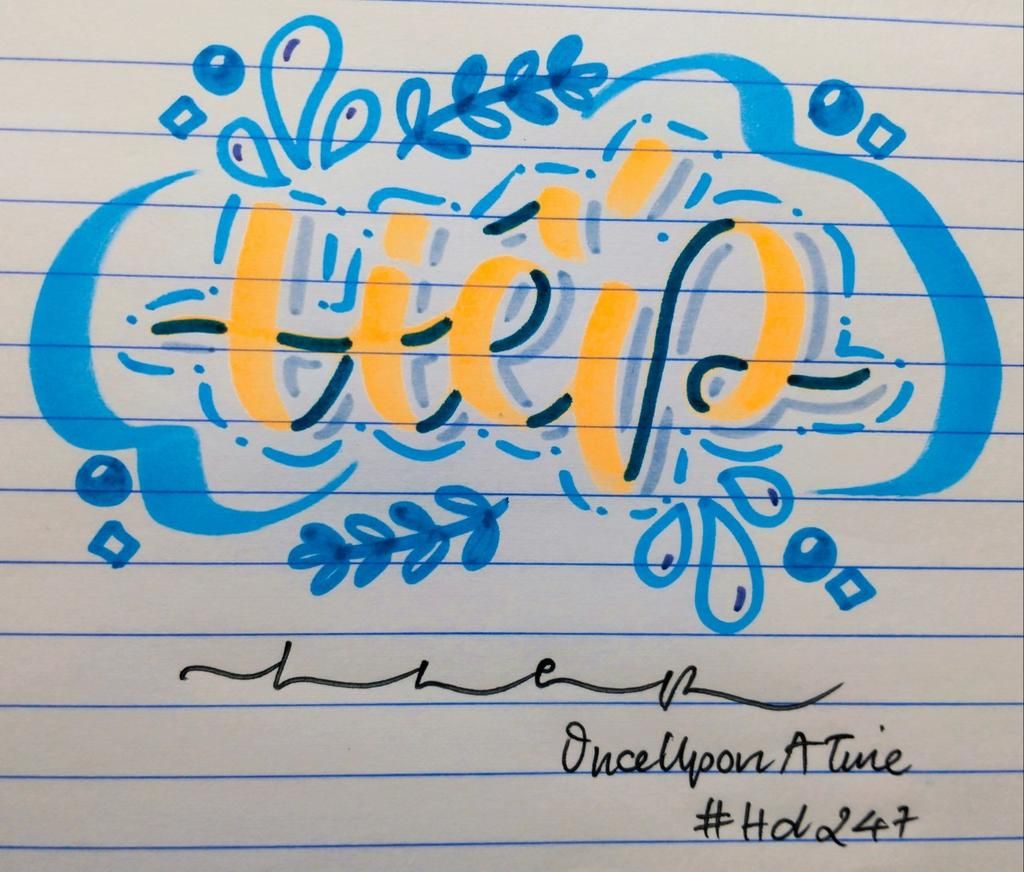 tiếp
tiep
OnceUponATime
#Hd247